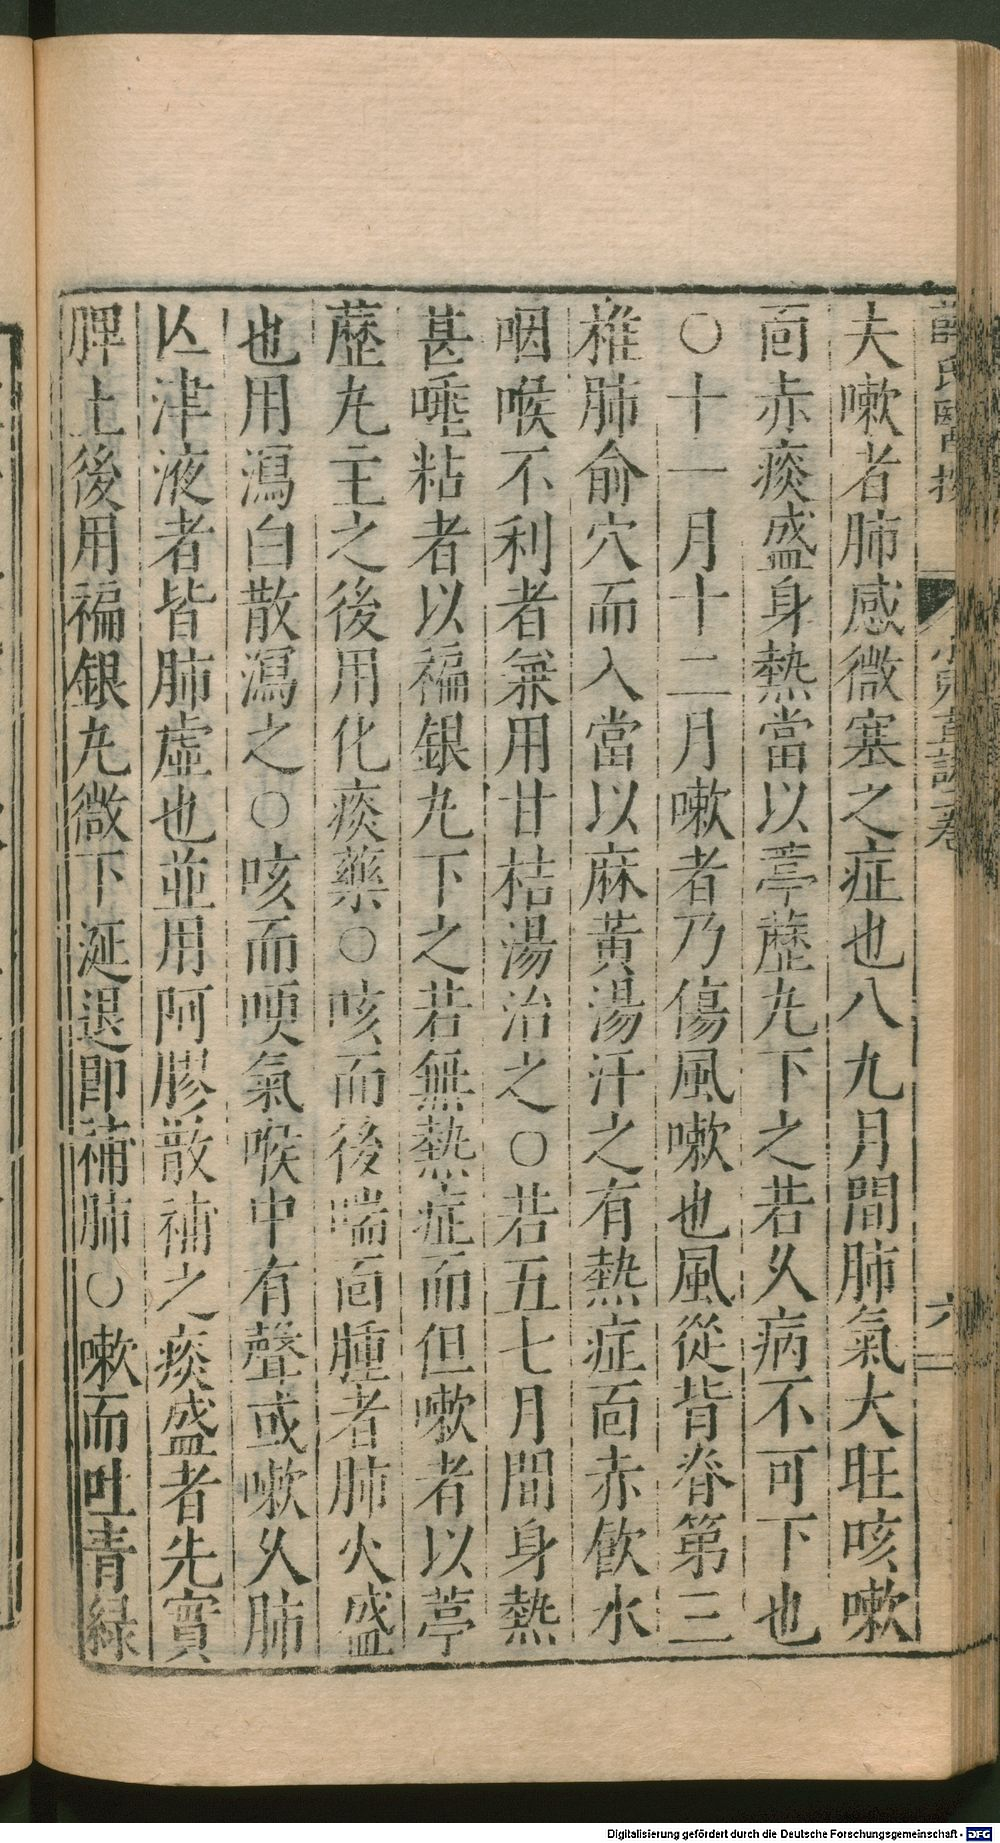 夫嗽者肺感微塞之症也八九月間肺氣大旺咳嗽
面赤痰盛身熱當以葶藶丸下之若久病不可下也
○十一月十二月嗽者乃傷風嗽也風從背脊第三
椎肺俞穴而入當以麻黃湯汗之有熱症面赤飲水
咽喉不利者兼用甘桔湯治之○若五七月間身熱
甚唾粘者以褊銀丸下之若無熱症而但嗽者以葶
藶丸主之後用化痰藥○咳而後喘面腫者肺火盛
也用瀉白散瀉之○咳而哽氣喉中有聲或嗽久肺
亾津液者皆肺虛也並用阿膠散補之痰盛者先實
脾土後用褊銀丸微下涎退即補肺○嗽而吐青綠
薛氏醫按
小兒直訣卷
六
Digitalisierung gefördert durch die Deutsche Forschungsgemeinschaft - DFG